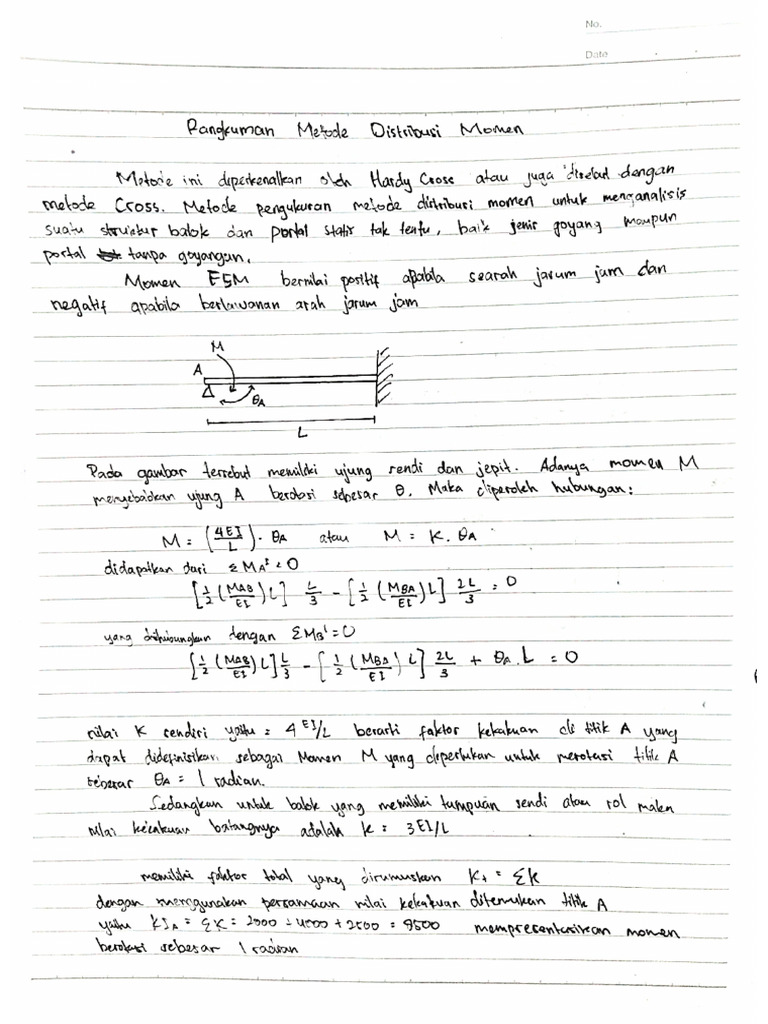 No.
Date
Rangkuman Metode Distribusi Momen
Metode ini diperkenalkan oleh Hardy Cross atau juga disebut dengan
metode Cross. Metode pengukuran metode distribusi momen untuk menganalisis
suatu struktur balok dan portal statis tak tentu, baik jenis goyang maupun
portal tanpa goyangan.
Momen FEM bernilai positif apabila searah jarum jam dan
negatif apabila berlawanan arah jarum jam
M
A
θA
L
Pada gambar tersebut memiliki ujung sendi dan jepit. Adanya momen M
menyebabkan ujung A berotasi sebesar θ. Maka diperoleh hubungan:
M = (4EI/L) . θA atau M = K . θA
didapatkan dari ΣMA' = 0
[1/2 (MAB/EI) L] L/3 - [1/2 (MBA/EI) L] 2L/3 = 0
yang dihubungkan dengan ΣMB' = 0
[1/2 (MAB/EI) L] L/3 - [1/2 (MBA/EI) L] 2L/3 + θA . L = 0
nilai K sendiri yaitu = 4 EI/L berarti faktor kekakuan di titik A yang
dapat didefinisikan sebagai Momen M yang diperlukan untuk merotasi titik A
sebesar θA = 1 radian.
Sedangkan untuk balok yang memiliki tumpuan sendi atau rol maka
nilai kekakuan batangnya adalah k = 3EI/L
memiliki faktor total yang dirumuskan KT = ΣK
dengan menggunakan persamaan nilai kekakuan ditemukan titik A
yaitu KTA = ΣK = 2000 + 4000 + 2500 = 8500 mempresentasikan momen
berotasi sebesar 1 radian